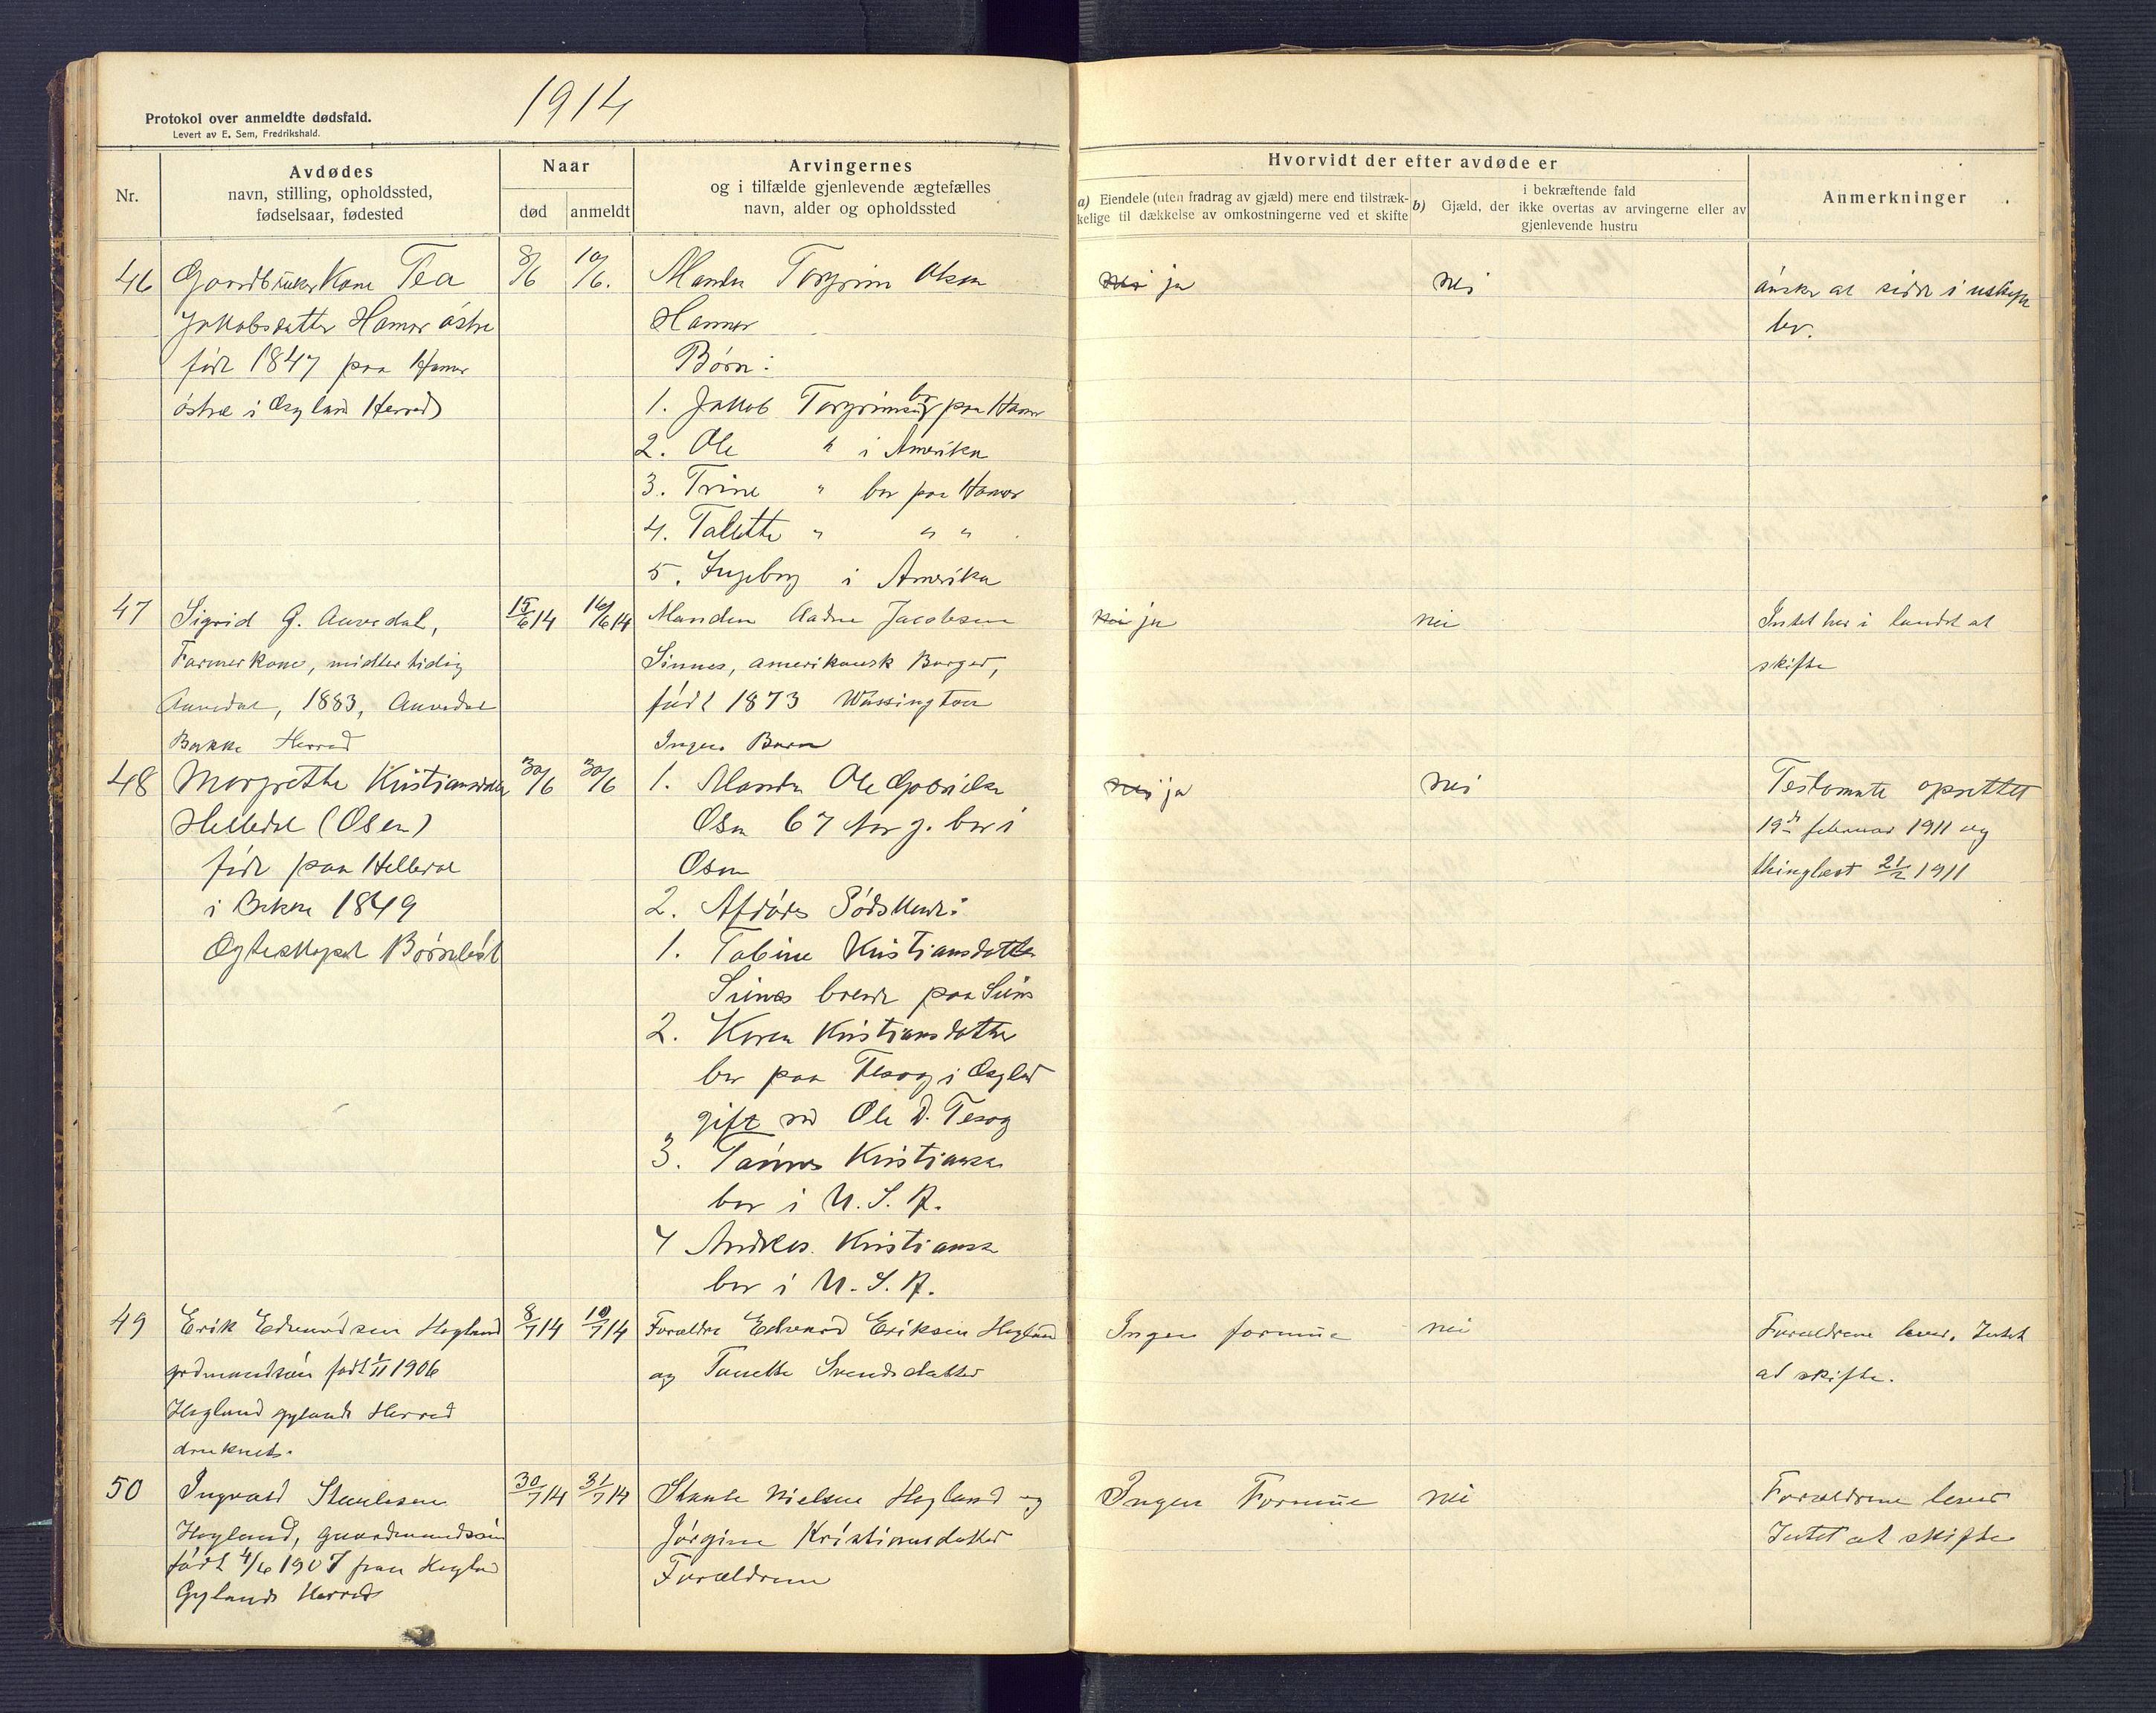 1914
Protokol over anmeldte dødsfald.
Levert av E. Sem, Fredrikshald.
Nr.
Avdødes
navn, stilling, opholdssted,
fødselsaar, fødested
Naar
død
anmeldt
Arvingernes
og i tilfælde gjenlevende ægtefælles
navn, alder og opholdssted
Hvorvidt der efter avdøde er
a) Eiendele (uten fradrag av gjæld) mere end tilstræk-
kelige til dækkelse av omkostningerne ved et skifte
i bekræftende fald
b) Gjæld, der ikke overtas av arvingerne eller av
gjenlevende hustru
Anmerkninger
46
Gaardbruker Kone Tea
Jakobsdatter Hamar østre
født 1847 paa Hamar
østre i Herred
8/6
10/6.
Manden Torgrim Olsen
Hamar
Børn:
1. Jakob Torgrimsen bor paa Hamar
2. Ole " i Amerika
3. Trine " bor paa Hamar
4. Talette " " "
5. Ingeborg i Amerika
nei ja
nei
ønsker at sidde i uskiftet
bo.
47
Sigrid G. Aavedal,
Farmerkone, midlertidig
Aavedal, 1883, Aavedal
Bakke Herred
15/6 14
16/6 14
Manden Aadne Jacobsen
Sinnes, amerikansk Borger,
født 1873 Wassington
Ingen Barn
nei ja
nei
Intet her i landet at
skifte
48
Margrethe Kristiansdatter
Helledal (Osen)
født paa Helledal
i Bakke 1849
Egteskapet Børnløst
30/6
30/6
1. Manden Ole Gabrielsen
Osen 67 Aar g. bor i
Osen
2. Afdødes Sødskende:
1. Tabine Kristiansdatter
Sines boende paa Sines
2. Karen Kristiansdatter
bor paa i
gift med Ole D.
3. Tønnes Kristiansen
bor i U. S. A.
4 Andreas Kristiansen
bor i U. S. A.
nei ja
nei
Testamente oprettet
19de februar 1911 og
thinglæst 21/2 1911
49
Erik Edvardsen Hegland
grdmandssøn født 1/11 1906
Hegland gylands Herred
druknet.
8/7 14
10/7 14
Forældre Edvard Eriksen Hegland
og Tanette Svendsdatter
Ingen formue
nei
Forældrene lever. Intet
at skifte.
50
Ingvald
Hegland, gaardmandssøn
født 4/6 1907 paa Hegland
Gylands Herred
30/7 14
31/7 14
Nielsen Hegland og
Jørgine Kristiansdatter
Forældrene
Ingen Formue
nei
Forældrene lever
Intet at skifte